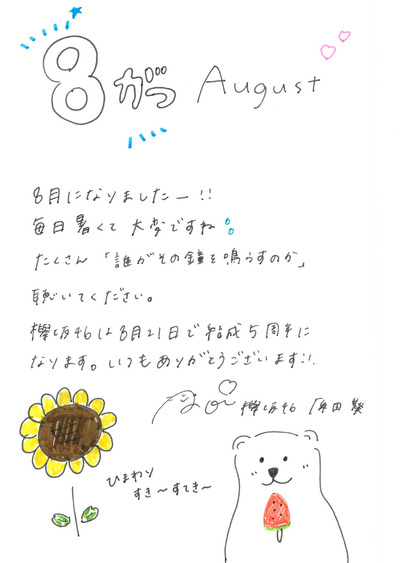 8がつ August
8月になりましたー!!
毎日暑くて大変ですね
たくさん「誰がその鐘を鳴らすのか」
聴いてください。
欅坂46は8月21日で結成5周年に
なります。いつもありがとうございます!!
Aoi 欅坂46 原田 葵
ひまわり
すき〜すてき〜